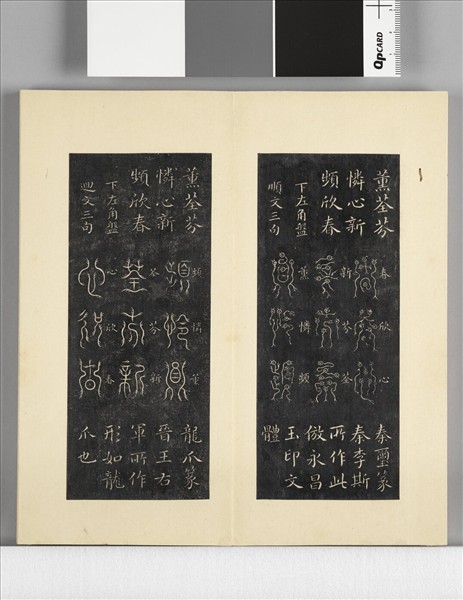 QpCARD
薫荃芬
憐心新
頻欣春
下左角盤
順文三句
春欣心
新芬荃
薫憐頻
秦璽篆
秦李斯
所作此
倣永昌
玉印文
體
薫荃芬
憐心新
頻欣春
下左角盤
迴文三句
頻憐薫
荃芬新
心欣春
龍爪篆
晉王右
軍所作
形如龍
爪也